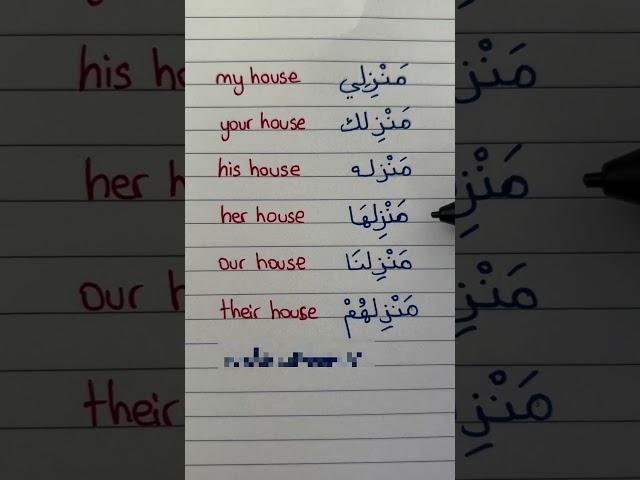 my house مَنْزِلي
your house مَنْزِلك
his house مَنْزله
her house مَنْزِلهَا
our house مَنْزِلنَا
their house مَنْزِلهُمْ